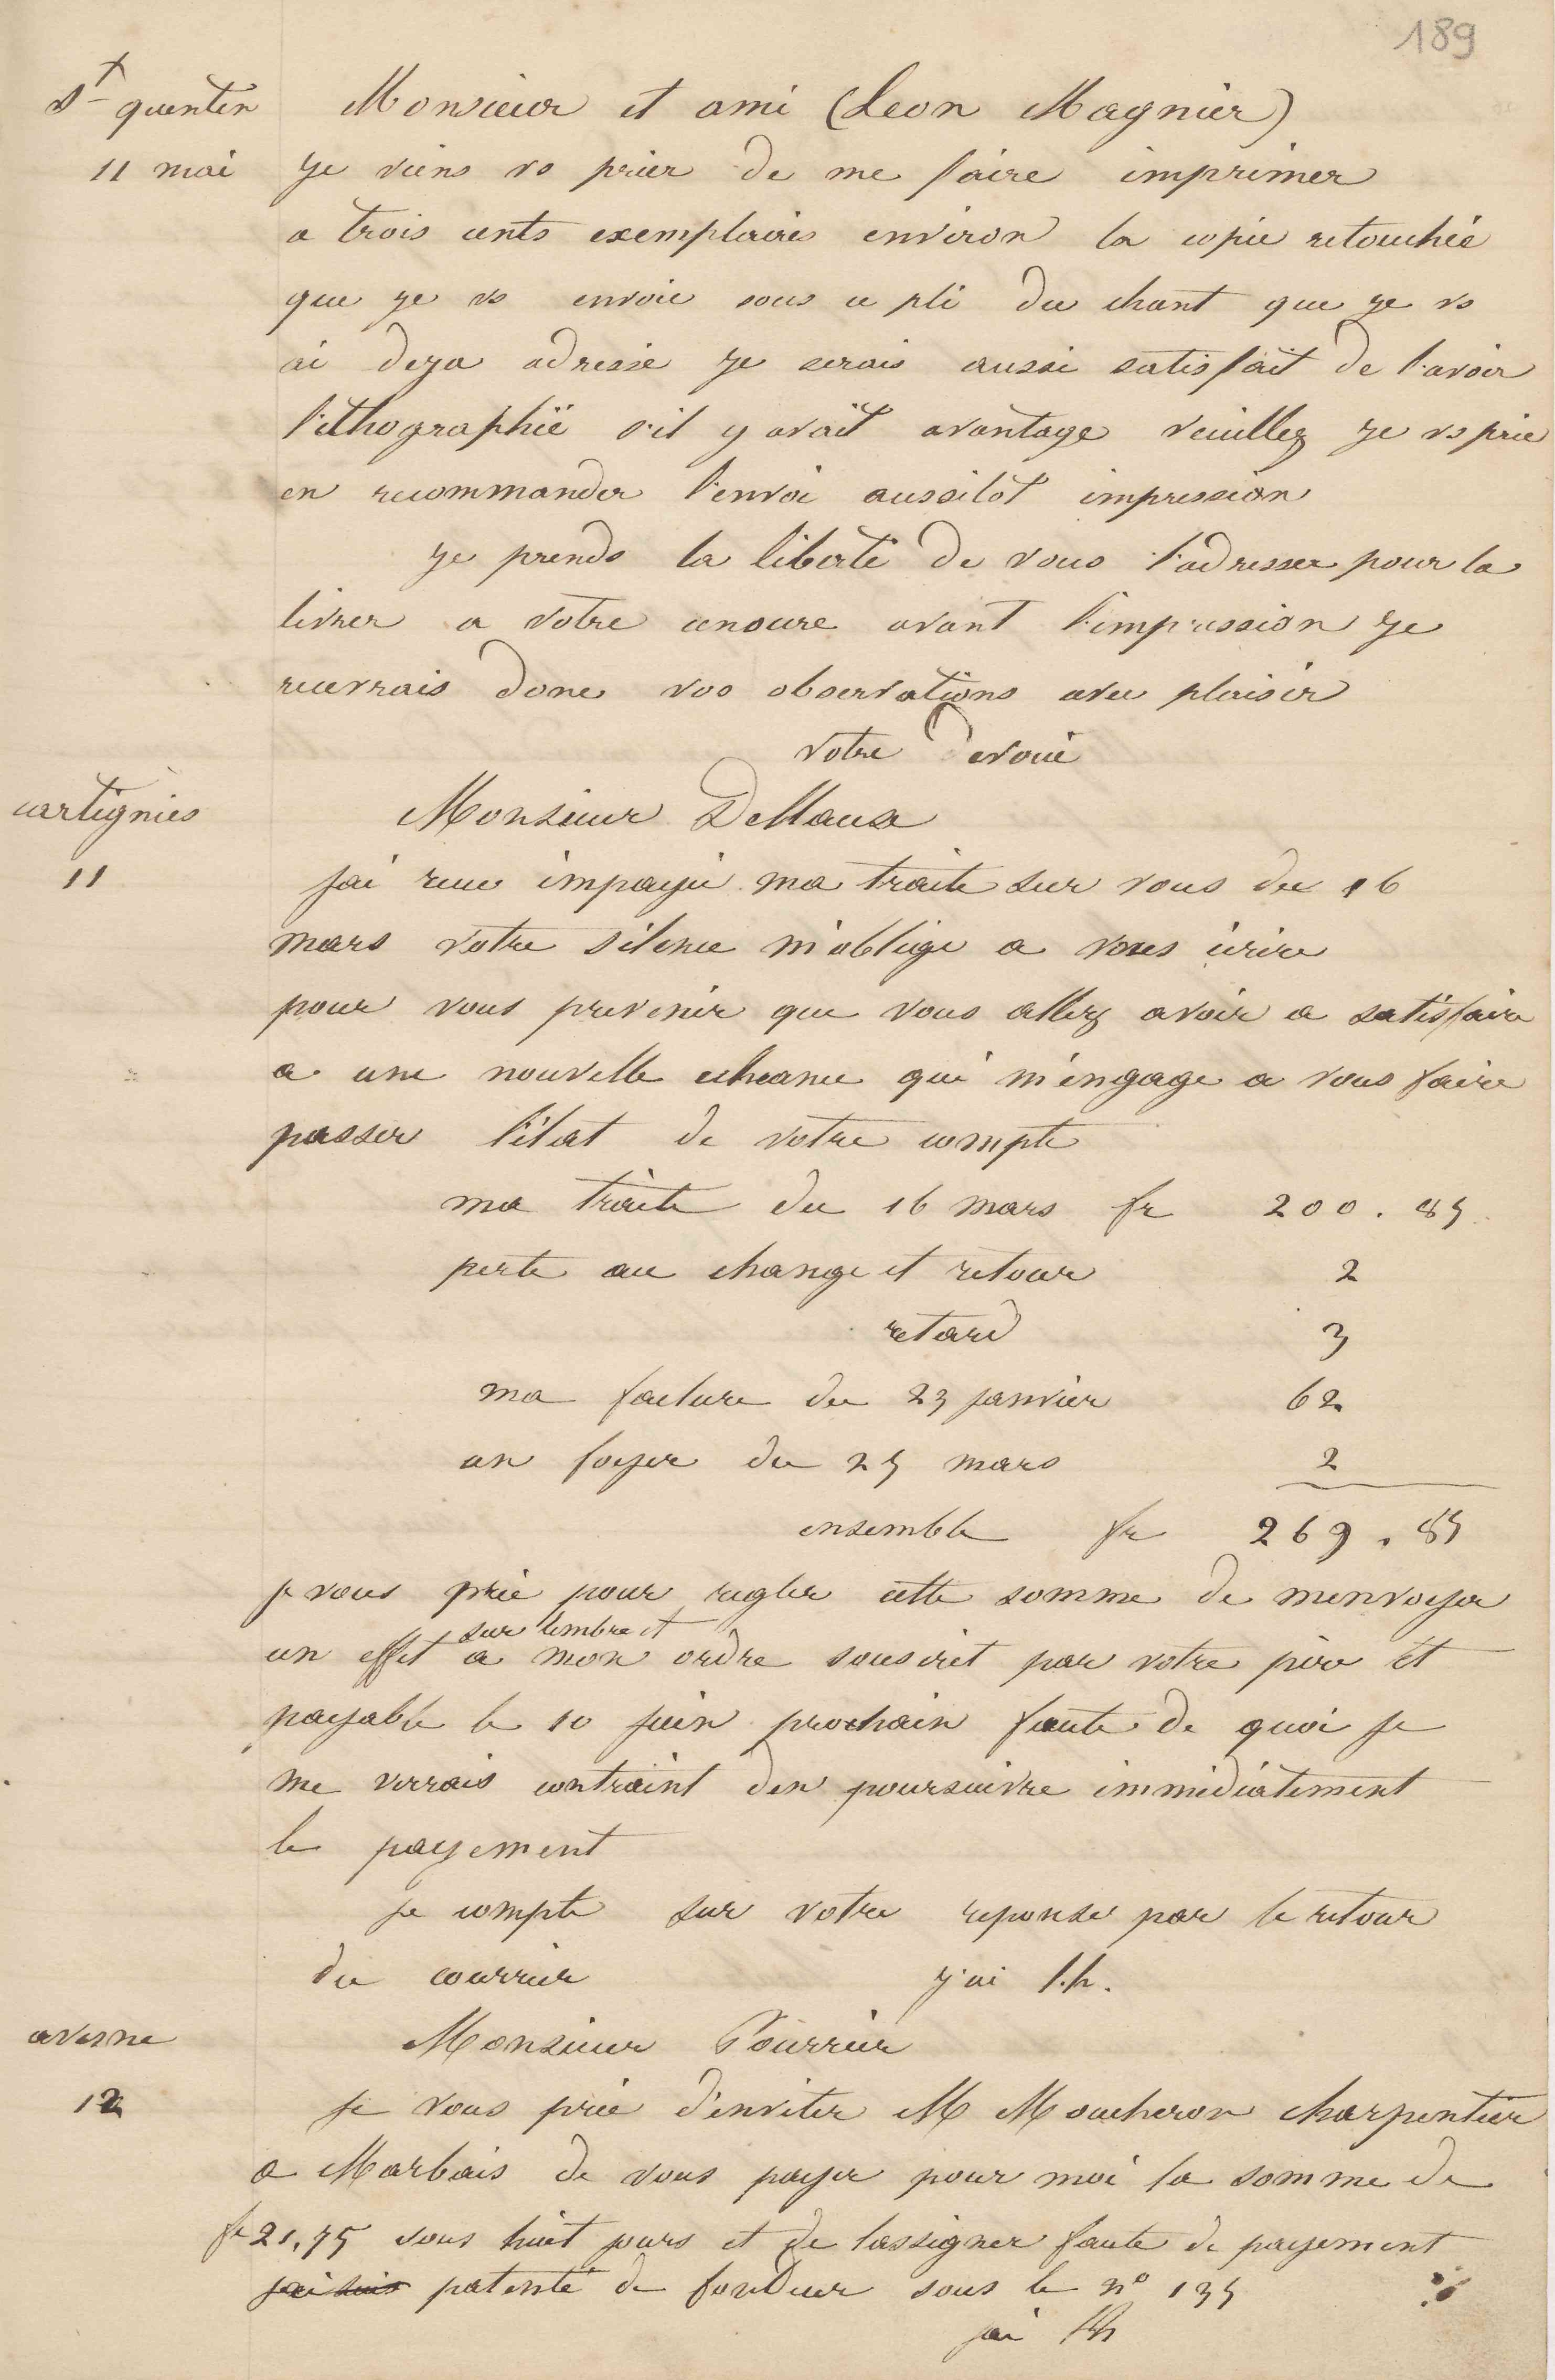 189
St quentin Monsieur et ami (Leon Magnier)
11 mai je viens vs prier de me faire imprimer
a trois cents exemplaires environ la copie retouchée
que je vs envoie sous ce pli du chant que je vs
ai deja adressé je serais aussi satisfait de l'avoir
lithographié s'il y avait avantage veuillez je vs prie
en recommander l'envoi aussitôt impression
je prends la liberté de vous l'adresser pour la
livrer a votre censure avant l'impression je
recevrais donc vos observations avec plaisir
votre devoué
cartignies Monsieur Dellaux
11 jai recu impayée ma traite sur vous du 16
mars votre silence m'oblige a vous écrire
pour vous prevenir que vous allez avoir a satisfaire
a une nouvelle echeance qui m'engage a vous faire
passer l'état de votre compte
ma traite du 16 mars fr 200.85
perte au change et retour 2
retard 3
ma facture du 23 janvier 62
un foyer du 25 mars 2
ensemble fr 269.85
je vous prie pour regler cette somme de menvoyer
sur timbre et
un effet a mon ordre souscrit par votre père et
payable le 10 juin prochain faute de quoi je
me verrais contraint den poursuivre immédiatement
le payement
je compte sur votre reponse par le retour
du courrier j'ai l.h.
avesne Monsieur Pourrier
12 je vous prie d'inviter M Moucheron charpentier
a Marbais de vous payer pour moi la somme de
fr 21,75 sous huit jours et de lassigner faute de payement
jai suis patenté de fondeur sous le n° 135
jai lh